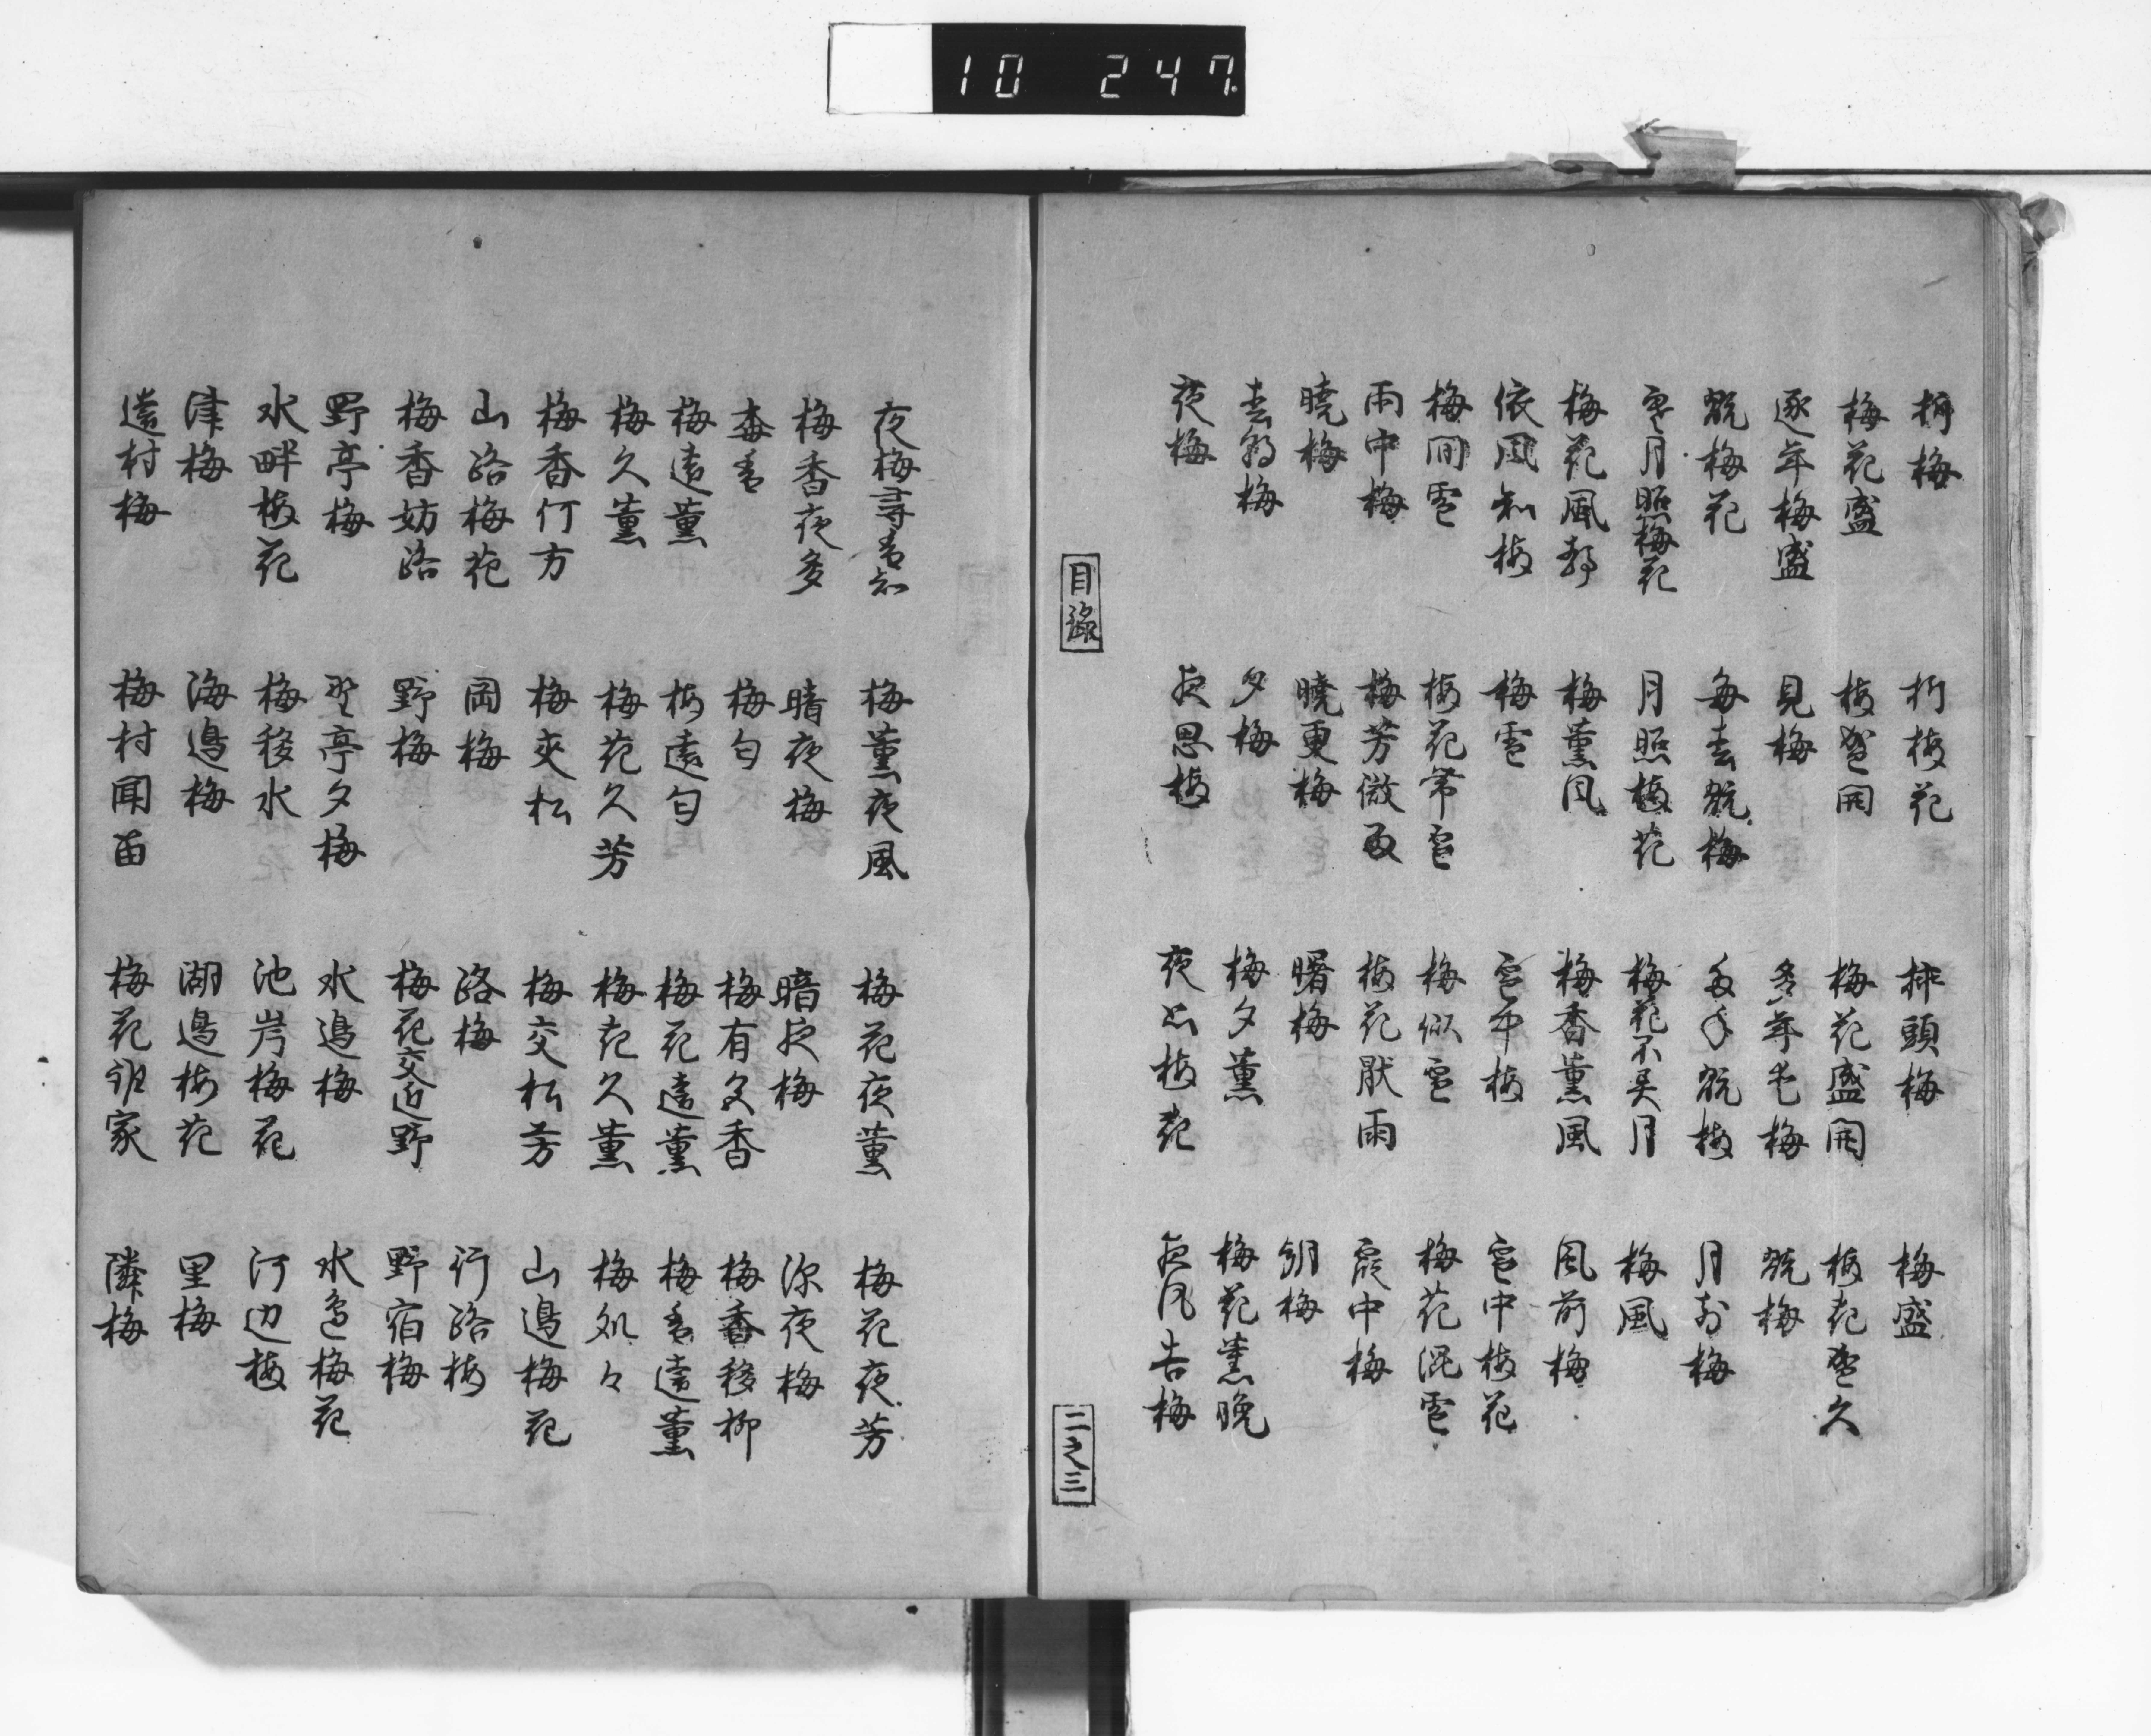 10 247
折梅 折梅花 挿頭梅 梅盛
梅花盛 梅盛開 梅花盛開 梅花盛久
逐年梅盛 見梅 多年毛梅 翫梅
翫梅花 毎春翫梅 翫梅 月前梅
雪月照梅花 月照梅花 梅花不異月 梅風
梅花風静 梅薫風 梅香薫風 風前梅
依風知梅 梅雪 雪中梅 雪中梅花
梅間雪 梅花帯雪 梅似雪 梅花混雪
雨中梅 梅芳微雨 梅花厭雨 霞中梅
暁梅 暁更梅 曙梅 朝梅
春朝梅 夕梅 梅夕薫 梅花薫晩
夜梅 夜思梅 夜思梅花 夜風告梅
目録
二之三
夜梅尋香知 梅薫夜風 梅花夜薫 梅花夜芳
梅香夜多 暗夜梅 暗夜梅 深夜梅
梅香 梅匂 梅有久香 梅香移柳
梅遠薫 梅遠匂 梅花遠薫 梅香遠薫
梅久薫 梅花久芳 梅花久薫 梅処々
梅香何方 梅交松 梅交松芳 山邉梅花
山路梅花 岡梅 路梅 行路梅
梅香妨路 野梅 梅花交近野 野宿梅
野亭梅 野亭夕梅 水邉梅 水邉梅花
水畔梅花 梅移水 池岸梅花 河辺梅
津梅 海邉梅 湖邉梅花 里梅
遠村梅 梅村聞笛 梅花誰家 隣梅